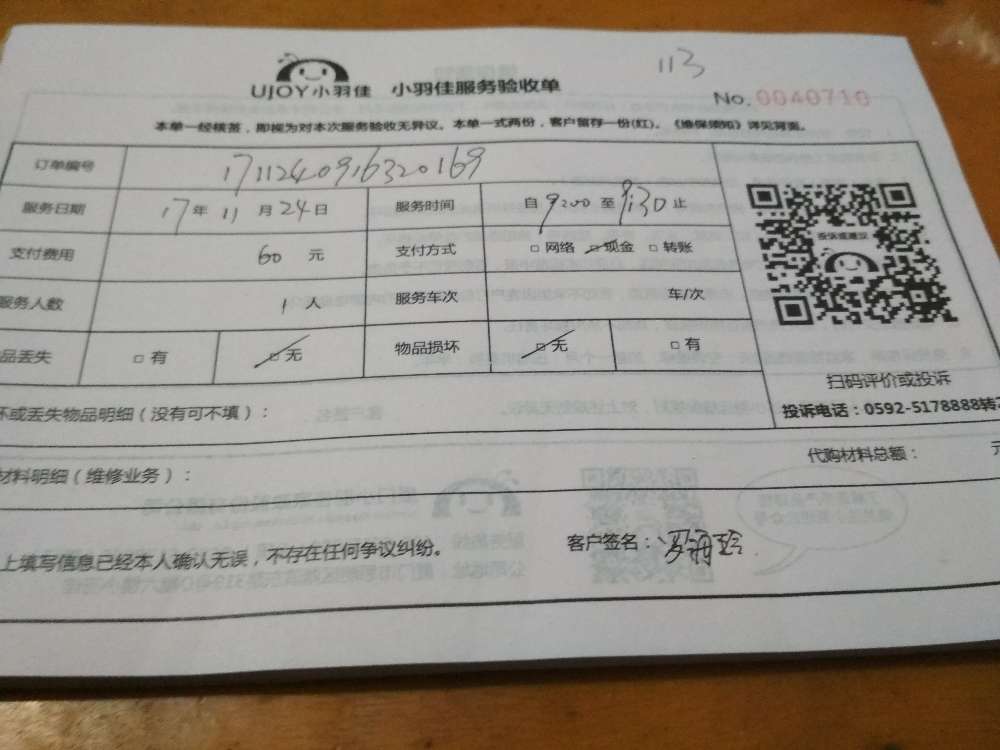 113
UJOY小羽佳 小羽佳服务验收单
No. 0040710
本单一经核签，即视为对本次服务验收无异议。本单一式两份，客户留存一份(红)。《维保须知》详见背面。
订单编号 1711240916320169
服务日期 17年11月24日 服务时间 自9:00至9:30止
支付费用 60 元 支付方式 □网络 □现金 □转账
服务人数 1人 服务车次 车/次
品丢失 □有 □无 物品损坏 □无 □有
投诉或建议
扫码评价或投诉
投诉电话：0592-5178888转
坏或丢失物品明细（没有可不填）：
材料明细（维修业务）： 代购材料总额： 元
上填写信息已经本人确认无误，不存在任何争议纠纷。 客户签名：